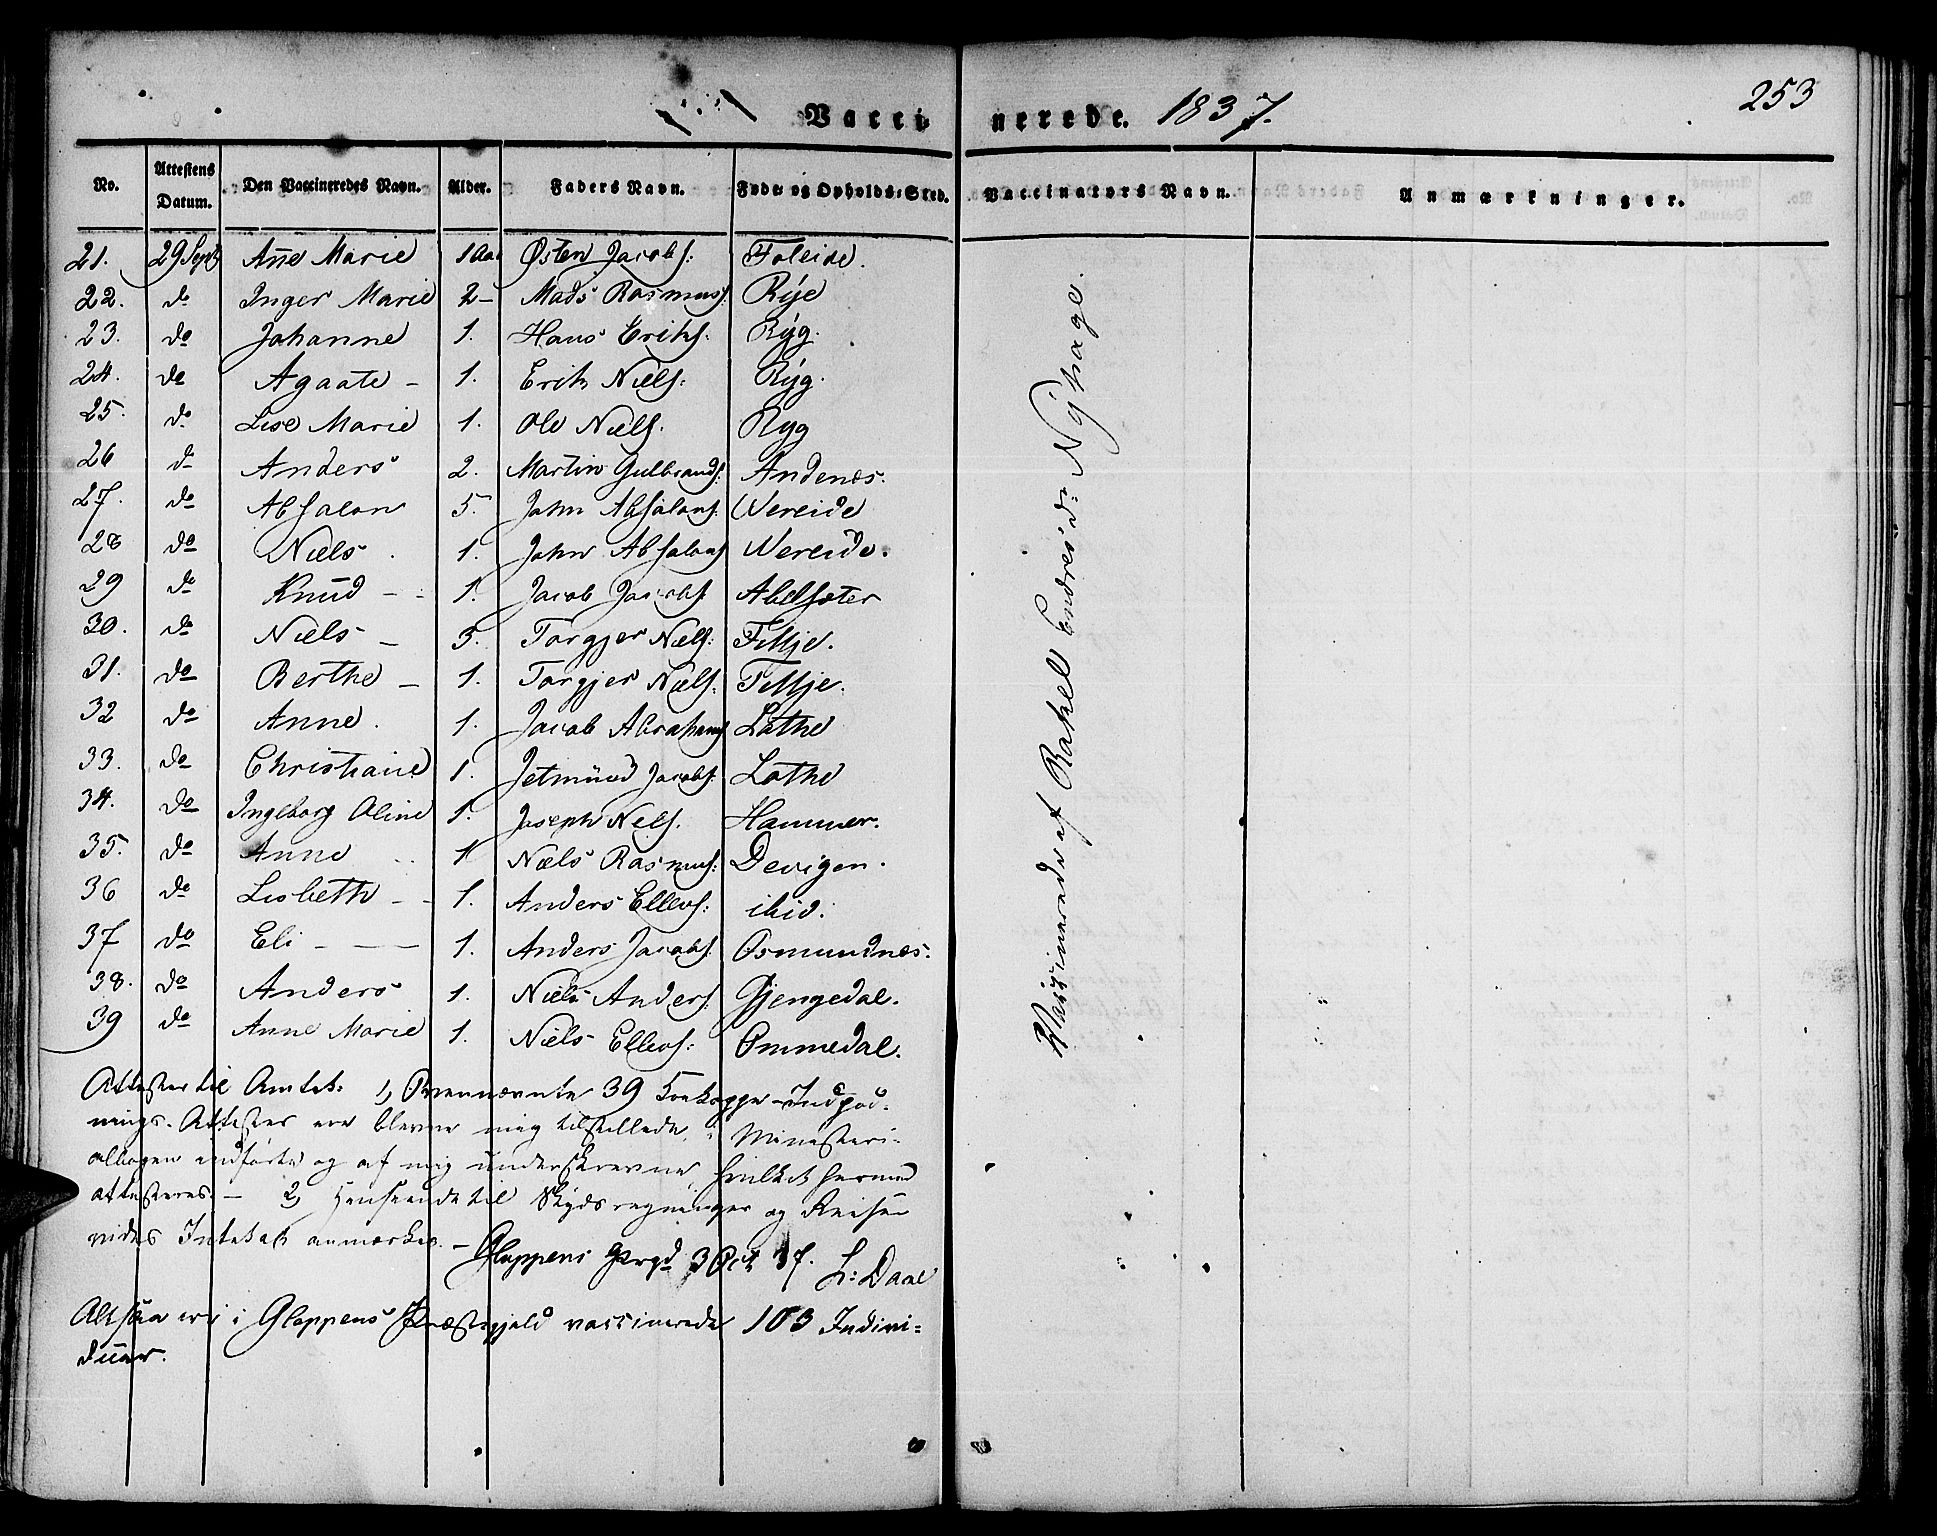 Vaccinerede. 1837.
253
No. Attestens Datum. Den Vaccineredes Navn. Alder. Faders Navn. Føde: og Opholds: Sted. Vaccinators Navn. Anmærkninger.
21. 29 Sept An̄e Marie 1 Aar Østen Jacobs: Foleide.
22. do Inger Marie 2 – Mads Rasmuss: Rye
23. do Johanne 1. Hans Eriks: Ryg.
24. do Agaate – 1. Erik Niels: Ryg.
25. do Lise Marie 1. Ole Niels. Ryg
26 do Anders 2. Martin Gulbrands: Andenæs.
27. do Absalon 5. John Absalons: Vereide
28 do Niels. 1. John Absalons Vereide.
29 do Knud – – 1. Jacob Jacobs Abelsæter
30. do Niels – 3. Torgjer Niels:
31. do Berthe – 1. Torgjer Niels:
32 do Anne. 1. Jacob Abrahams Lothe
33. do Christiane 1. Jetmund Jacobs: Lothe
34. do Ingeborg Oline 1. Joseph Nels. Hammer.
35. do Anne 1 Niels Rasmus: Devigen.
36 do Lisbeth – – 1. Anders Ellevs: ibid.
37 do Eli – – – 1. Anders Jacobs: Osmundnæs.
38. do Anders 1. Niels Anders: Gjengedal.
39 do Anne Marie 1. Niels Ellevs: Ommedal.
Vassinerede af Rakel Endresdr: Nyhage.
Attester til Amtet: 1, Ovennævnte 39 Koekoppe-Indpod-
nings-Attester ere blevne mig tilstillede, i Ministeri-
albogen indførte og af mig underskrevne, hvilket herved
attesteres. – 2, Henseende til Skydsregninger og Reiser
vides Intet at anmærke. –
Gloppens Prgd 3 Oct 37. L: Daae
Altsaa ere i Gloppens Præstegjeld vassinerede 103 Indivi-
duer.